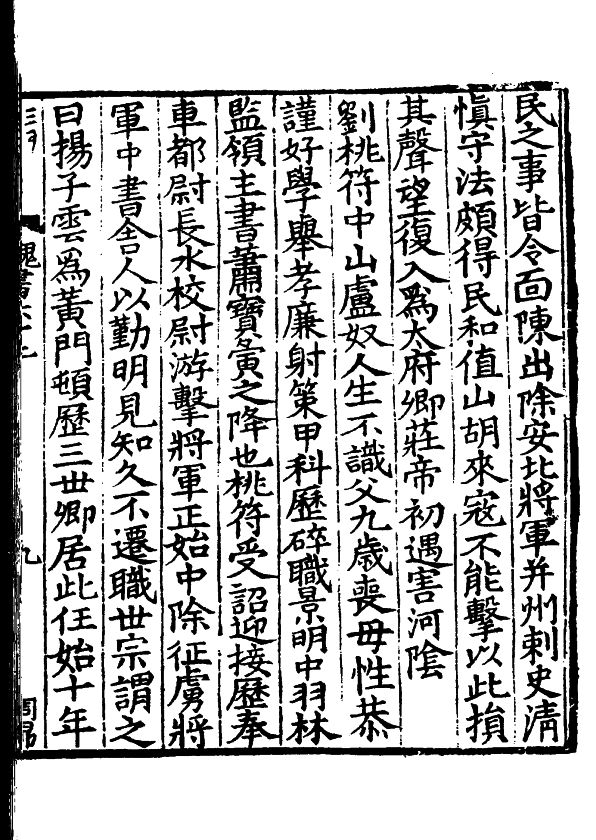 民之事皆令面陳出除安北將軍并州刺史清
慎守法頗得民和值山胡來寇不能擊以此損
其聲望復入爲太府卿莊帝初遇害河陰
劉桃符中山盧奴人生不識父九歲喪母性恭
謹好學舉孝廉射策甲科歷碎職景明中羽林
監領主書蕭寶夤之降也桃符受詔迎接歷奉
車都尉長水校尉游擊將軍正始中除征虜將
軍中書舍人以勤明見知久不遷職世宗謂之
曰揚子雲爲黃門頓歷三世卿居此任始十年
魏書
九